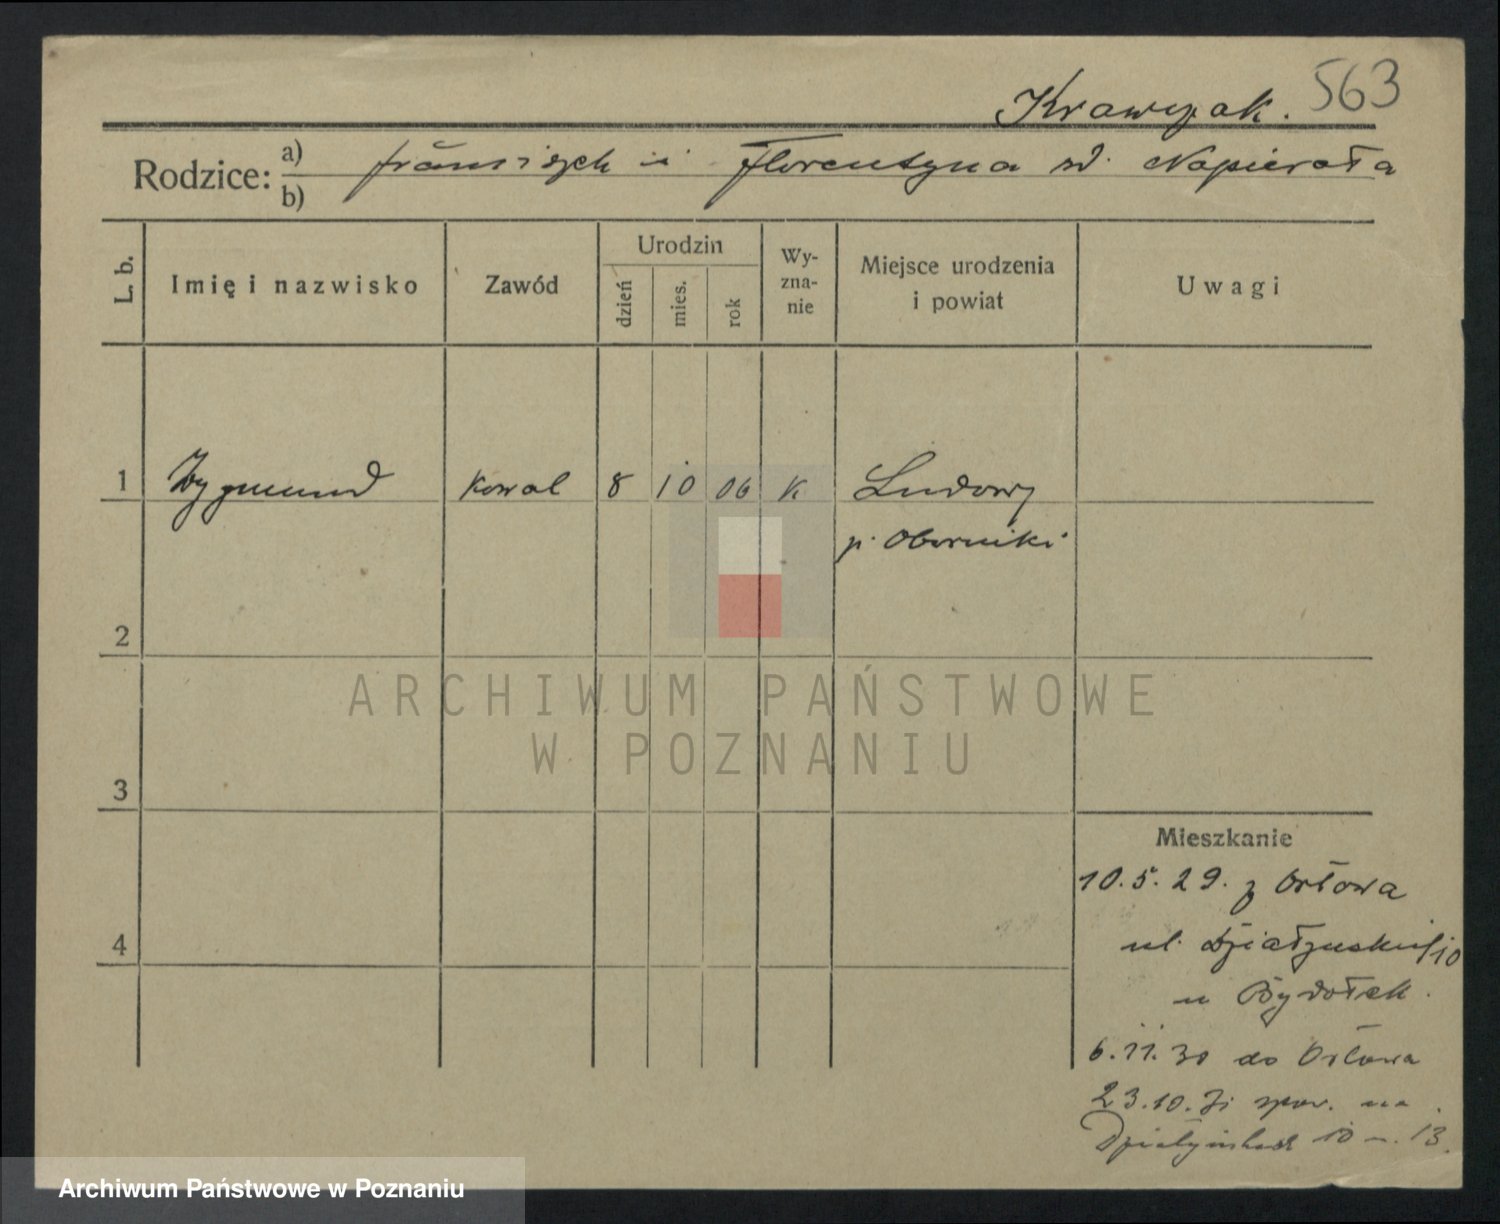 563
Krawczak.
Rodzice: a) Franciszek i Florentyna zd. Napierała
b)
L. b.
Imię i nazwisko
Zawód
Urodzin
dzień
mies.
rok
Wy-
zna-
nie
Miejsce urodzenia
i powiat
Uwagi
1 Zygmund kowal 8 10 06 K Ludomy
p. Oborniki
2
3
4
Mieszkanie
10.5.29. z Orłowa
ul. Działyńskich 10
u
6.11.30 do Orłowa
23.10.31 na
Działyńskich 10 m. 13.
ARCHIWUM PAŃSTWOWE
W POZNANIU
Archiwum Państwowe w Poznaniu